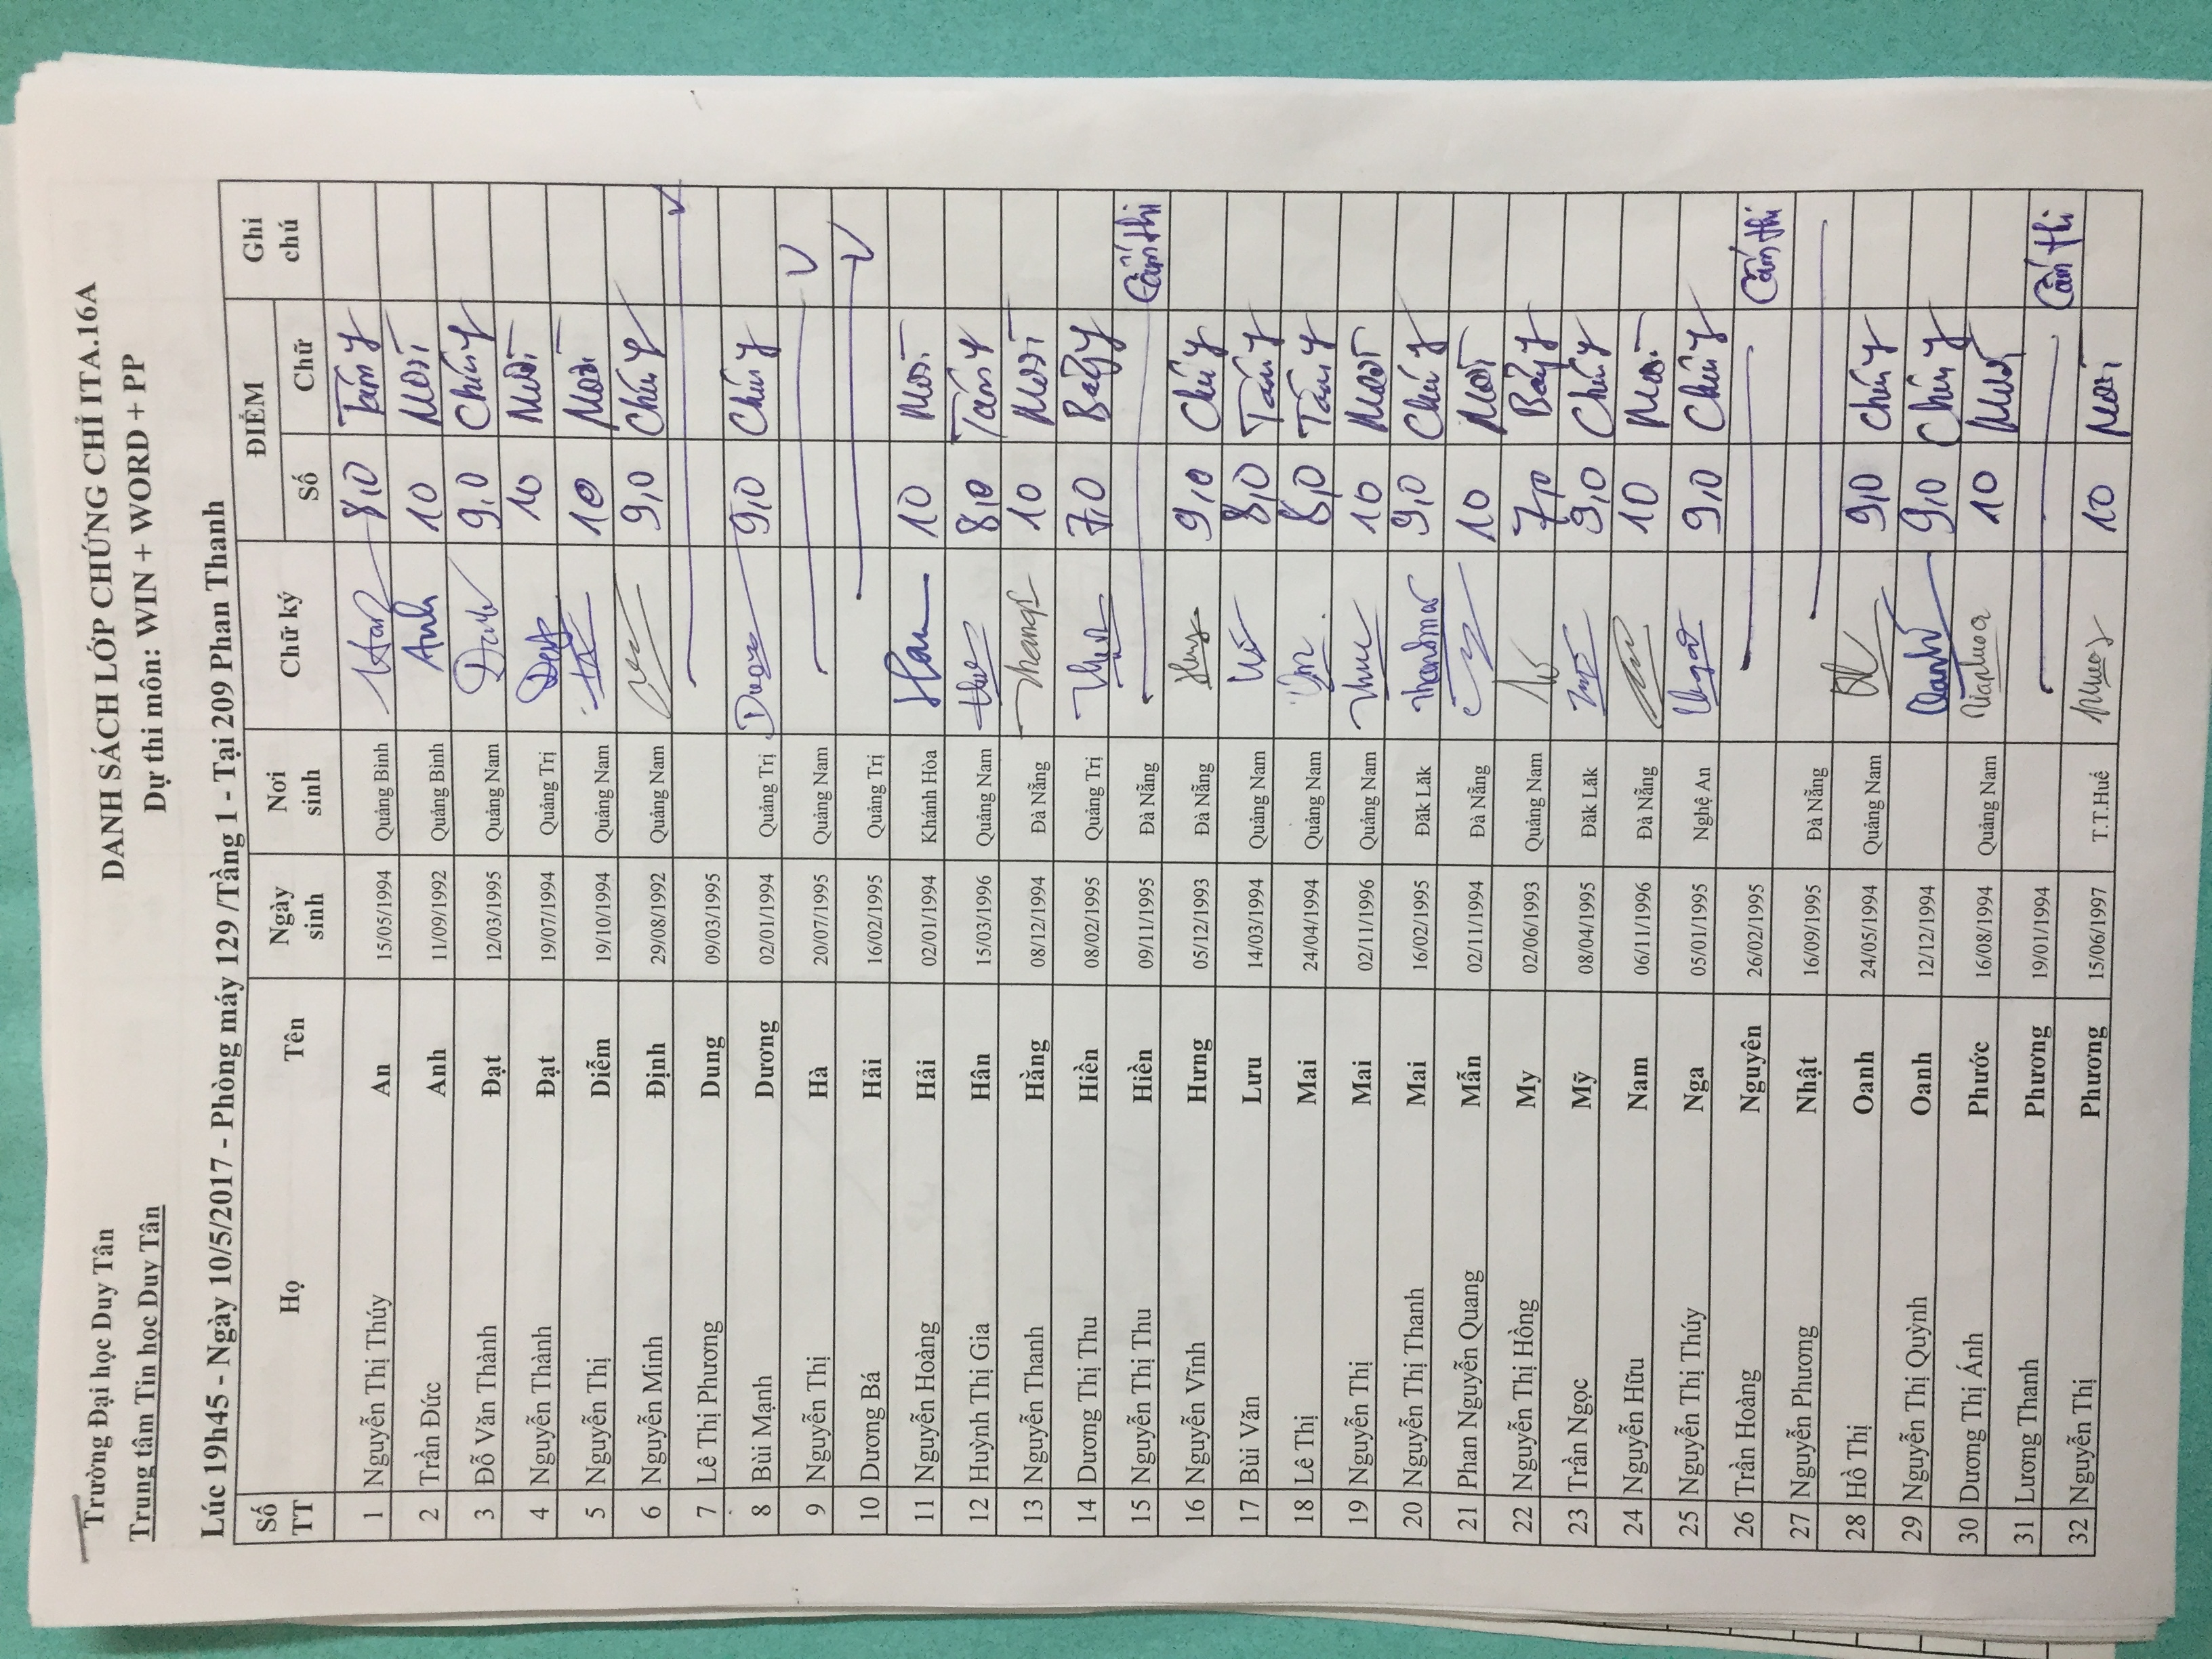 Trường Đại học Duy Tân
Trung tâm Tin học Duy Tân
DANH SÁCH LỚP CHỨNG CHỈ ITA.16A
Dự thi môn: WIN + WORD + PP
Lúc 19h45 - Ngày 10/5/2017 - Phòng máy 129 /Tầng 1 - Tại 209 Phan Thanh
Số TT Họ Tên Ngày sinh Nơi sinh Chữ ký ĐIỂM Số Chữ Ghi chú
1 Nguyễn Thị Thúy An 15/05/1994 Quảng Bình 8,0 Tám
2 Trần Đức Anh 11/09/1992 Quảng Bình Anh 10 Mười
3 Đỗ Văn Thành Đạt 12/03/1995 Quảng Nam 9,0 Chín
4 Nguyễn Thành Đạt 19/07/1994 Quảng Trị 10 Mười
5 Nguyễn Thị Diễm 19/10/1994 Quảng Nam 10 Mười
6 Nguyễn Minh Định 29/08/1992 Quảng Nam 9,0 Chín
7 Lê Thị Phương Dung 09/03/1995 V
8 Bùi Mạnh Dương 02/01/1994 Quảng Trị 9,0 Chín
9 Nguyễn Thị Hà 20/07/1995 Quảng Nam V
10 Dương Bá Hải 16/02/1995 Quảng Trị V
11 Nguyễn Hoàng Hải 02/01/1994 Khánh Hòa 10 Mười
12 Huỳnh Thị Gia Hân 15/03/1996 Quảng Nam 8,0 Tám
13 Nguyễn Thanh Hằng 08/12/1994 Đà Nẵng 10 Mười
14 Dương Thị Thu Hiền 08/02/1995 Quảng Trị 7,0 Bảy
15 Nguyễn Thị Thu Hiền 09/11/1995 Đà Nẵng Cấm thi
16 Nguyễn Vĩnh Hưng 05/12/1993 Đà Nẵng 9,0 Chín
17 Bùi Văn Lưu 14/03/1994 Quảng Nam 8,0 Tám
18 Lê Thị Mai 24/04/1994 Quảng Nam 8,0 Tám
19 Nguyễn Thị Mai 02/11/1996 Quảng Nam 10 Mười
20 Nguyễn Thị Thanh Mai 16/02/1995 Đăk Lăk 9,0 Chín
21 Phan Nguyễn Quang Mẫn 02/11/1994 Đà Nẵng 10 Mười
22 Nguyễn Thị Hồng My 02/06/1993 Quảng Nam 7,0 Bảy
23 Trần Ngọc Mỹ 08/04/1995 Đăk Lăk 9,0 Chín
24 Nguyễn Hữu Nam 06/11/1996 Đà Nẵng 10 Mười
25 Nguyễn Thị Thúy Nga 05/01/1995 Nghệ An 9,0 Chín
26 Trần Hoàng Nguyên 26/02/1995 Cấm thi
27 Nguyễn Phương Nhật 16/09/1995 Đà Nẵng
28 Hồ Thị Oanh 24/05/1994 Quảng Nam 9,0 Chín
29 Nguyễn Thị Quỳnh Oanh 12/12/1994 Oanh 9,0 Chín
30 Dương Thị Ánh Phước 16/08/1994 Quảng Nam 10 Mười
31 Lương Thanh Phương 19/01/1994 Cấm thi
32 Nguyễn Thị Phương 15/06/1997 T.T.Huế 10 Mười